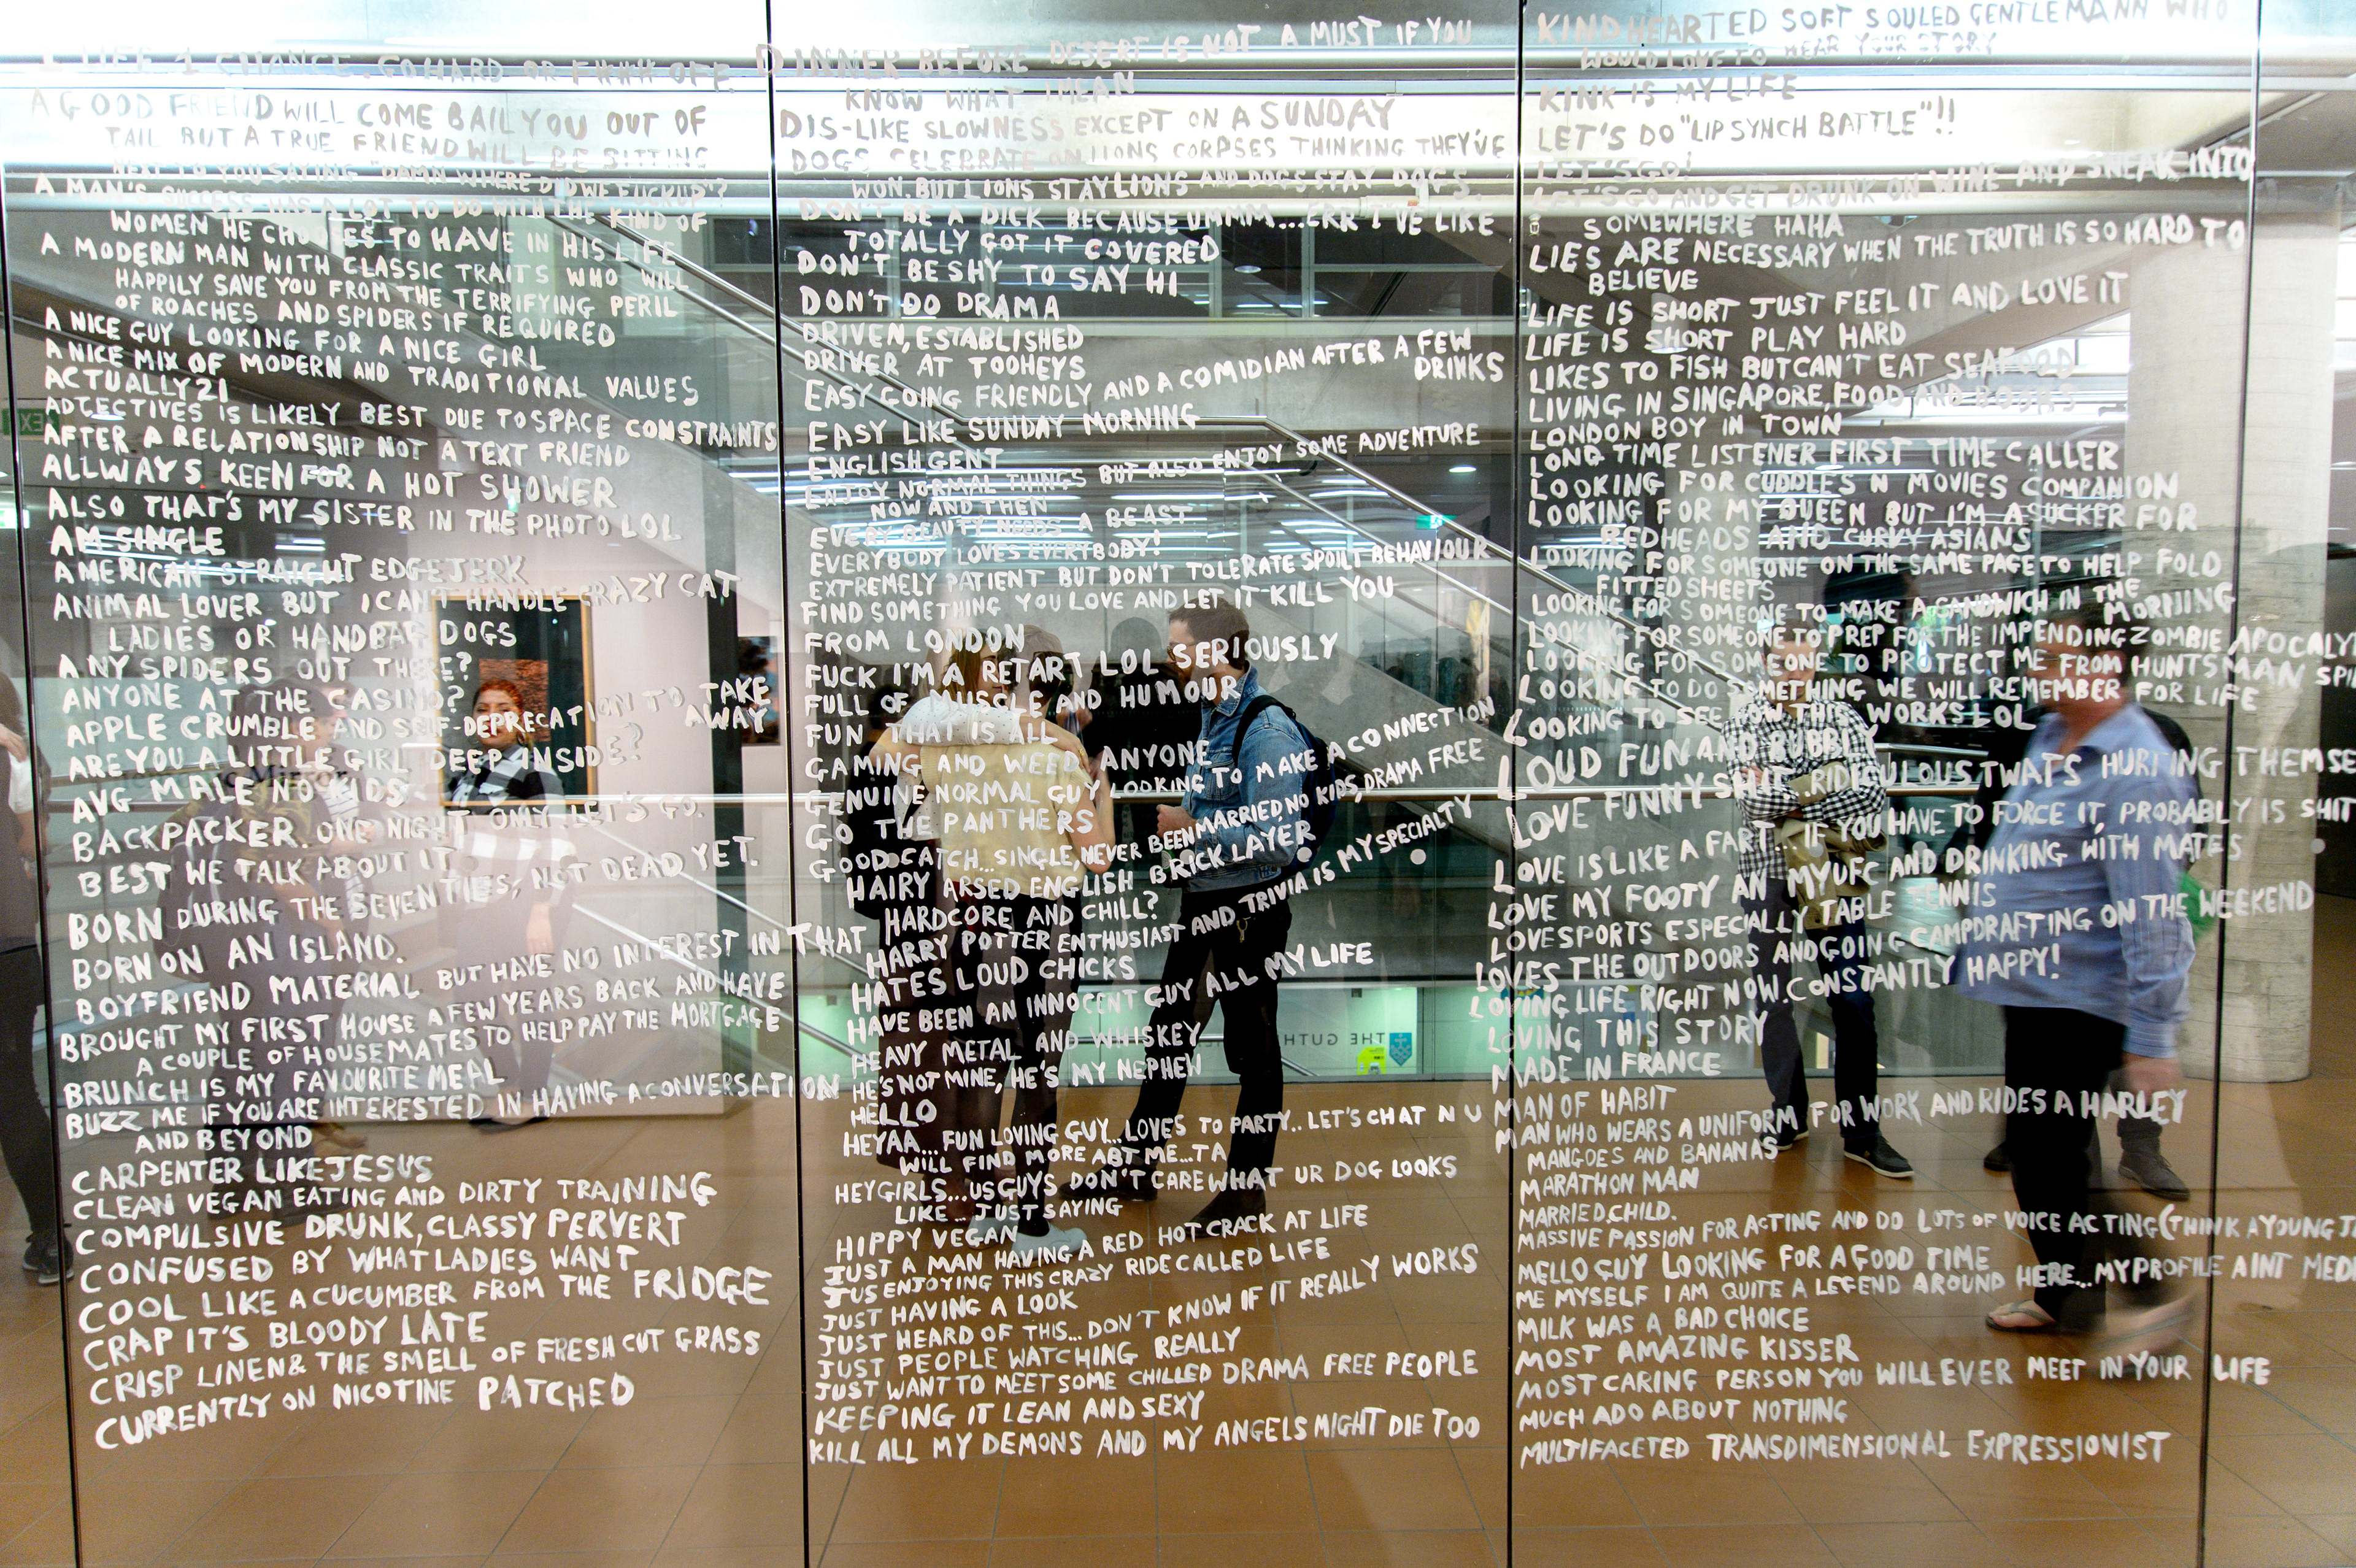 1 LIFE 1 CHANCE. GO HARD OR F### OFF.
A GOOD FRIEND WILL COME BAIL YOU OUT OF
TAIL BUT A TRUE FRIEND WILL BE SITTING
NEXT TO YOU SAYING "DAMN WHERE DID WE FUCK UP"?
A MAN'S SUCCESS HAS A LOT TO DO WITH THE KIND OF
WOMEN HE CHOOSES TO HAVE IN HIS LIFE
A MODERN MAN WITH CLASSIC TRAITS WHO WILL
HAPPILY SAVE YOU FROM THE TERRIFYING PERIL
OF ROACHES AND SPIDERS IF REQUIRED
A NICE GUY LOOKING FOR A NICE GIRL
A NICE MIX OF MODERN AND TRADITIONAL VALUES
ACTUALLY 21
ADJECTIVES IS LIKELY BEST DUE TO SPACE CONSTRAINTS
AFTER A RELATIONSHIP NOT A TEXT FRIEND
ALLWAYS KEEN FOR A HOT SHOWER
ALSO THAT'S MY SISTER IN THE PHOTO LOL
AM SINGLE
AMERICAN STRAIGHT EDGE JERK
ANIMAL LOVER BUT I CAN'T HANDLE CRAZY CAT
LADIES OR HANDBAG DOGS
ANY SPIDERS OUT THERE?
ANYONE AT THE CASINO?
APPLE CRUMBLE AND SELF-DEPRECATION TO TAKE
AWAY
ARE YOU A LITTLE GIRL DEEP INSIDE?
AVG MALE NO KIDS
BACKPACKER. ONE NIGHT ONLY. LET'S GO.
BEST WE TALK ABOUT IT
BORN DURING THE SEVENTIES, NOT DEAD YET.
BORN ON AN ISLAND.
BOYFRIEND MATERIAL BUT HAVE NO INTEREST IN THAT
BROUGHT MY FIRST HOUSE A FEW YEARS BACK AND HAVE
A COUPLE OF HOUSEMATES TO HELP PAY THE MORTGAGE
BRUNCH IS MY FAVOURITE MEAL
BUZZ ME IF YOU ARE INTERESTED IN HAVING A CONVERSATION
AND BEYOND
CARPENTER LIKE JESUS
CLEAN VEGAN EATING AND DIRTY TRAINING
COMPULSIVE DRUNK, CLASSY PERVERT
CONFUSED BY WHAT LADIES WANT
COOL LIKE A CUCUMBER FROM THE FRIDGE
CRAP IT'S BLOODY LATE
CRISP LINEN & THE SMELL OF FRESH CUT GRASS
CURRENTLY ON NICOTINE PATCHED
DINNER BEFORE DESERT IS NOT A MUST IF YOU
KNOW WHAT I MEAN
DIS-LIKE SLOWNESS EXCEPT ON A SUNDAY
DOGS CELEBRATE ON LIONS CORPSES THINKING THEY'VE
WON. BUT LIONS STAY LIONS AND DOGS STAY DOGS.
DON'T BE A DICK BECAUSE UMMM...ERR I'VE LIKE
TOTALLY GOT IT COVERED
DON'T BE SHY TO SAY HI
DON'T DO DRAMA
DRIVEN, ESTABLISHED
DRIVER AT TOOHEYS
EASY GOING FRIENDLY AND A COMIDIAN AFTER A FEW
DRINKS
EASY LIKE SUNDAY MORNING
ENGLISH GENT
ENJOY NORMAL THINGS BUT ALSO ENJOY SOME ADVENTURE
NOW AND THEN
EVERY BEAUTY NEEDS A BEAST
EVERYBODY LOVES EVERYBODY!
EXTREMELY PATIENT BUT DON'T TOLERATE SPOILT BEHAVIOUR
FIND SOMETHING YOU LOVE AND LET IT KILL YOU
FROM LONDON
FUCK I'M A RETART LOL SERIOUSLY
FULL OF MUSCLE AND HUMOUR
FUN THAT IS ALL
GAMING AND WEED ANYONE
GENUINE NORMAL GUY LOOKING TO MAKE A CONNECTION
GO THE PANTHERS
GOOD CATCH...SINGLE, NEVER BEEN MARRIED, NO KIDS, DRAMA FREE
HAIRY ARSED ENGLISH BRICK LAYER
HARDCORE AND CHILL?
HARRY POTTER ENTHUSIAST AND TRIVIA IS MY SPECIALTY
HATES LOUD CHICKS
HAVE BEEN AN INNOCENT GUY ALL MY LIFE
HEAVY METAL AND WHISKEY
HE'S NOT MINE, HE'S MY NEPHEW
HELLO
HEYAA... FUN LOVING GUY...LOVES TO PARTY.. LET'S CHAT N U
WILL FIND MORE ABT ME...TA
HEY GIRLS...US GUYS DON'T CARE WHAT UR DOG LOOKS
LIKE... JUST SAYING
HIPPY VEGAN
JUST A MAN HAVING A RED HOT CRACK AT LIFE
JUS ENJOYING THIS CRAZY RIDE CALLED LIFE
JUST HAVING A LOOK
JUST HEARD OF THIS... DON'T KNOW IF IT REALLY WORKS
JUST PEOPLE WATCHING REALLY
JUST WANT TO MEET SOME CHILLED DRAMA FREE PEOPLE
KEEPING IT LEAN AND SEXY
KILL ALL MY DEMONS AND MY ANGELS MIGHT DIE TOO
KIND HEARTED SOFT SOULED GENTLEMANN WHO
WOULD LOVE TO HEAR YOUR STORY
KINK IS MY LIFE
LET'S DO "LIP SYNCH BATTLE"!!
LET'S GO!
LET'S GO AND GET DRUNK ON WINE AND SNEAK INTO
SOMEWHERE HAHA
LIES ARE NECESSARY WHEN THE TRUTH IS SO HARD TO
BELIEVE
LIFE IS SHORT JUST FEEL IT AND LOVE IT
LIFE IS SHORT PLAY HARD
LIKES TO FISH BUT CAN'T EAT SEAFOOD
LIVING IN SINGAPORE, FOOD AND BOOKS
LONDON BOY IN TOWN
LONG TIME LISTENER FIRST TIME CALLER
LOOKING FOR CUDDLES N MOVIES COMPANION
LOOKING FOR MY QUEEN BUT I'M A SUCKER FOR
REDHEADS AND CURVY ASIANS
LOOKING FOR SOMEONE ON THE SAME PAGE TO HELP FOLD
FITTED SHEETS
LOOKING FOR SOMEONE TO MAKE A SANDWICH IN THE
MORNING
LOOKING FOR SOMEONE TO PREP FOR THE IMPENDING ZOMBIE APOCALY
LOOKING FOR SOMEONE TO PROTECT ME FROM HUNTSMAN SPI
LOOKING TO DO SOMETHING WE WILL REMEMBER FOR LIFE
LOOKING TO SEE HOW THIS WORKS LOL
LOUD FUN AND BUBBLY
LOVE FUNNY SHIT. RIDICULOUS TWATS HURTING THEMSE
LOVE IS LIKE A FART... IF YOU HAVE TO FORCE IT, PROBABLY IS SHIT
LOVE MY FOOTY AN MY UFC AND DRINKING WITH MATES
LOVE SPORTS ESPECIALLY TABLE TENNIS
LOVES THE OUTDOORS AND GOING CAMPDRAFTING ON THE WEEKEND
LOVING LIFE RIGHT NOW. CONSTANTLY HAPPY!
LOVING THIS STORY
MADE IN FRANCE
MAN OF HABIT
MAN WHO WEARS A UNIFORM FOR WORK AND RIDES A HARLEY
MANGOES AND BANANAS
MARATHON MAN
MARRIED, CHILD.
MASSIVE PASSION FOR ACTING AND DO LOTS OF VOICE ACTING (THINK A YOUNG J
MELLO GUY LOOKING FOR A GOOD TIME
ME MYSELF I AM QUITE A LEGEND AROUND HERE...MY PROFILE AINT MED
MILK WAS A BAD CHOICE
MOST AMAZING KISSER
MOST CARING PERSON YOU WILL EVER MEET IN YOUR LIFE
MUCH ADO ABOUT NOTHING
MULTIFACETED TRANSDIMENSIONAL EXPRESSIONIST
Mirror
THE GUTH